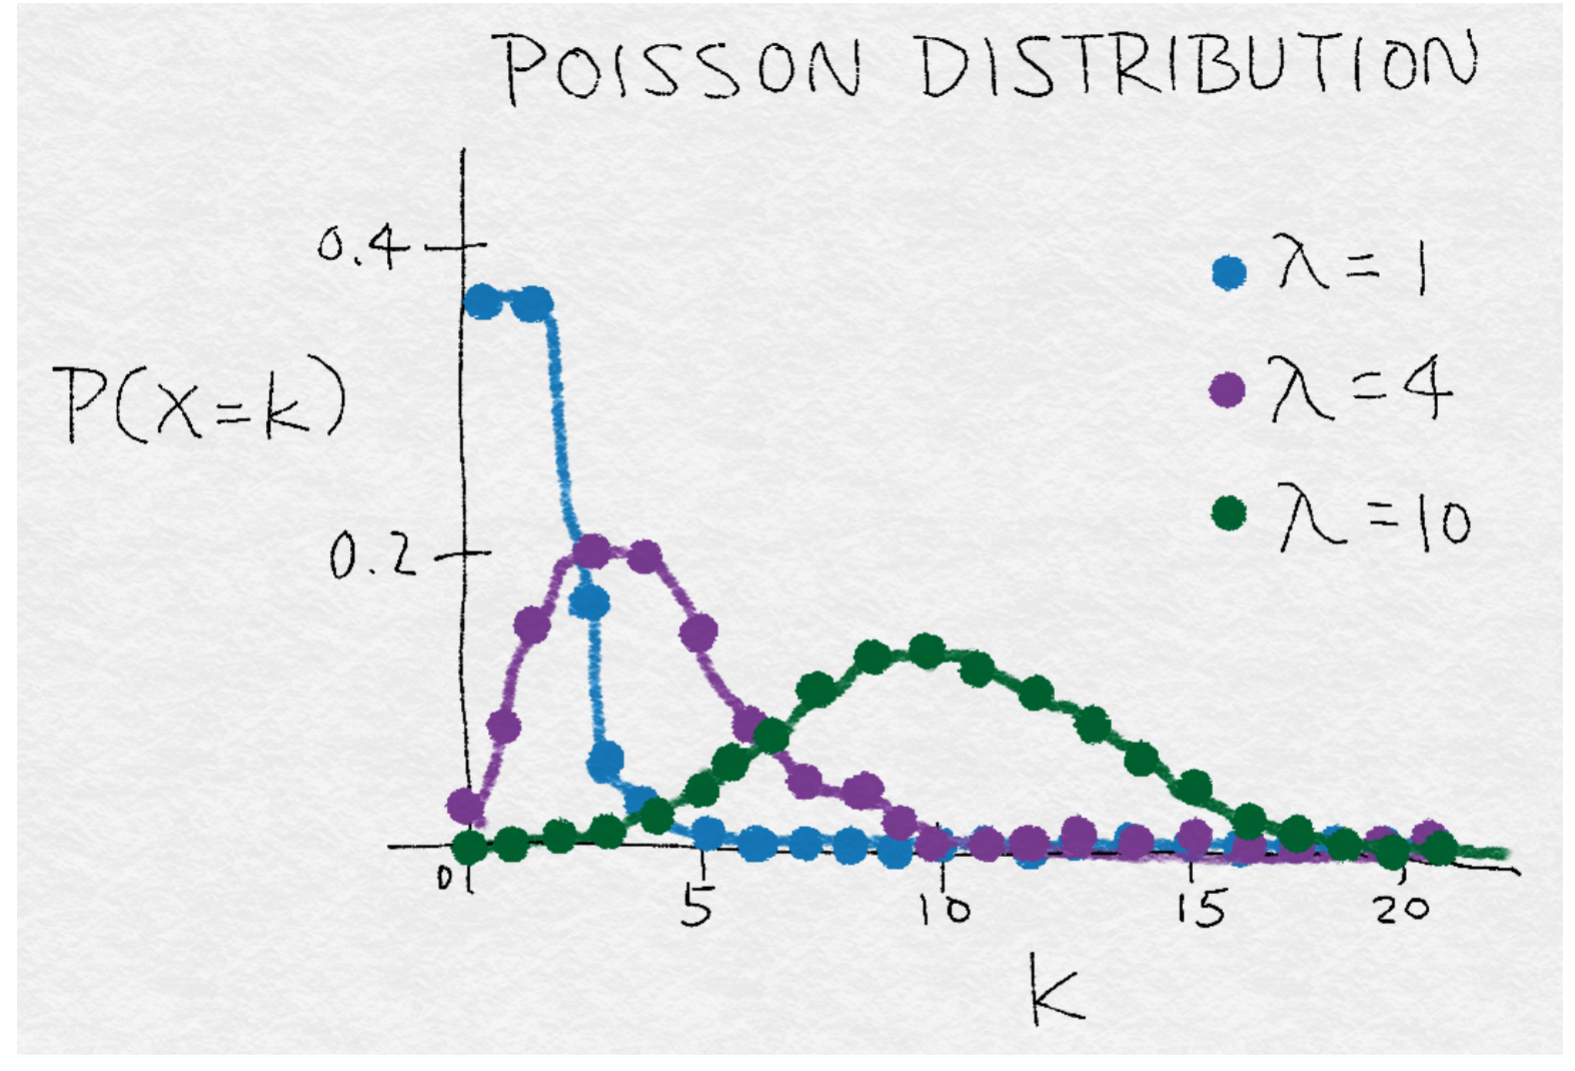 POISSON DISTRIBUTION
0.4
λ = 1
P(X=k)
λ = 4
λ = 10
0.2
0 5 10 15 20
k